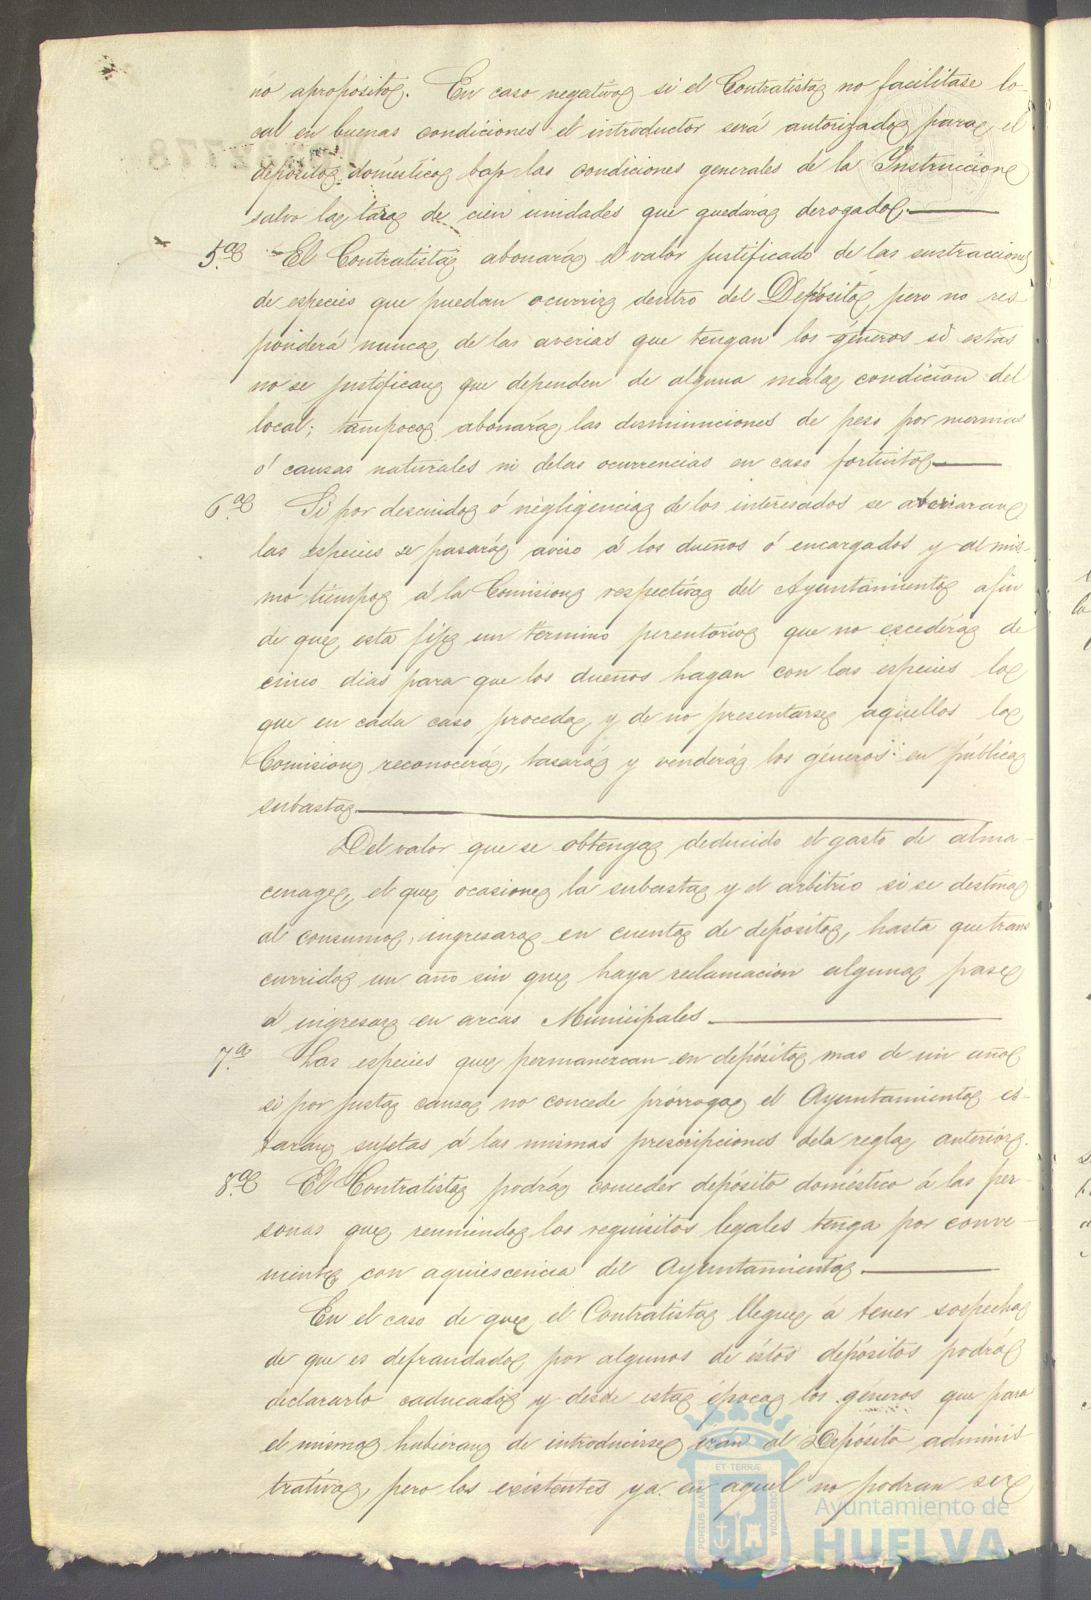 nó apropósito. En caso negativo si el Contratista no facilitase lo-
cal en buenas condiciones el introductor será autorizado para el
depósito doméstico bajo las condiciones generales de la Instruccion
salvo la tara de cien unidades que quedará derogado.
5.a El Contratista abonará el valor justificado de las sustracciones
de especies que puedan ocurrir dentro del Depósito, pero no res-
ponderá nunca, de las averias que tengan los géneros si estas
no se justifican que dependen de alguna mala condición del
local; tampoco abonará las disminuciones de peso por mermas
ó causas naturales ni delas ocurrencias en caso fortuito
6.a Si por descuido ó négligencia de los interesados se averiaran
las especies se pasará aviso á los dueños ó encargados y al mis-
mo tiempo á la Comision respectiva del Ayuntamiento afin
de que esta fije un termino perentorio que no escederá de
cinco dias para que los dueños hagan con las especies lo
que en cada caso proceda, y de no presentarse aquellos la
Comision reconocerá, tasará y venderá los géneros en pública
subasta
Del valor que se obtenga deducido el gasto de alma-
cenage, el que ocasione la subasta y el arbitrio si se destina
al consumo, ingresara en cuenta de depósito, hasta que trans
currido un año sin que haya reclamacion alguna pase
á ingresar en arcas Municipales
7.a Las especies que permanezcan en depósito mas de un año
si por justa causa no concede prórroga el Ayuntamiento es-
taran sujetas á las mismas prescripciones dela regla anterior.
8.a El Contratista podrá conceder depósito doméstico á las per-
sonas que reuniendo los requisitos legales tenga por conve-
niente con aquiescencia del Ayuntamiento.
En el caso de que el Contratista llegue á tener sospecha
de que es defraudado por algunos de éstos depósitos podrá
declararlo caducado y desde esta época los géneros que para
el mismo hubieran de introducirse irán al Depósito adminis
trativo, pero los existentes ya en aquel no podran ser
ET TERRÆ
PORTUS MARIS
CUSTODIA
Ayuntamiento de
HUELVA